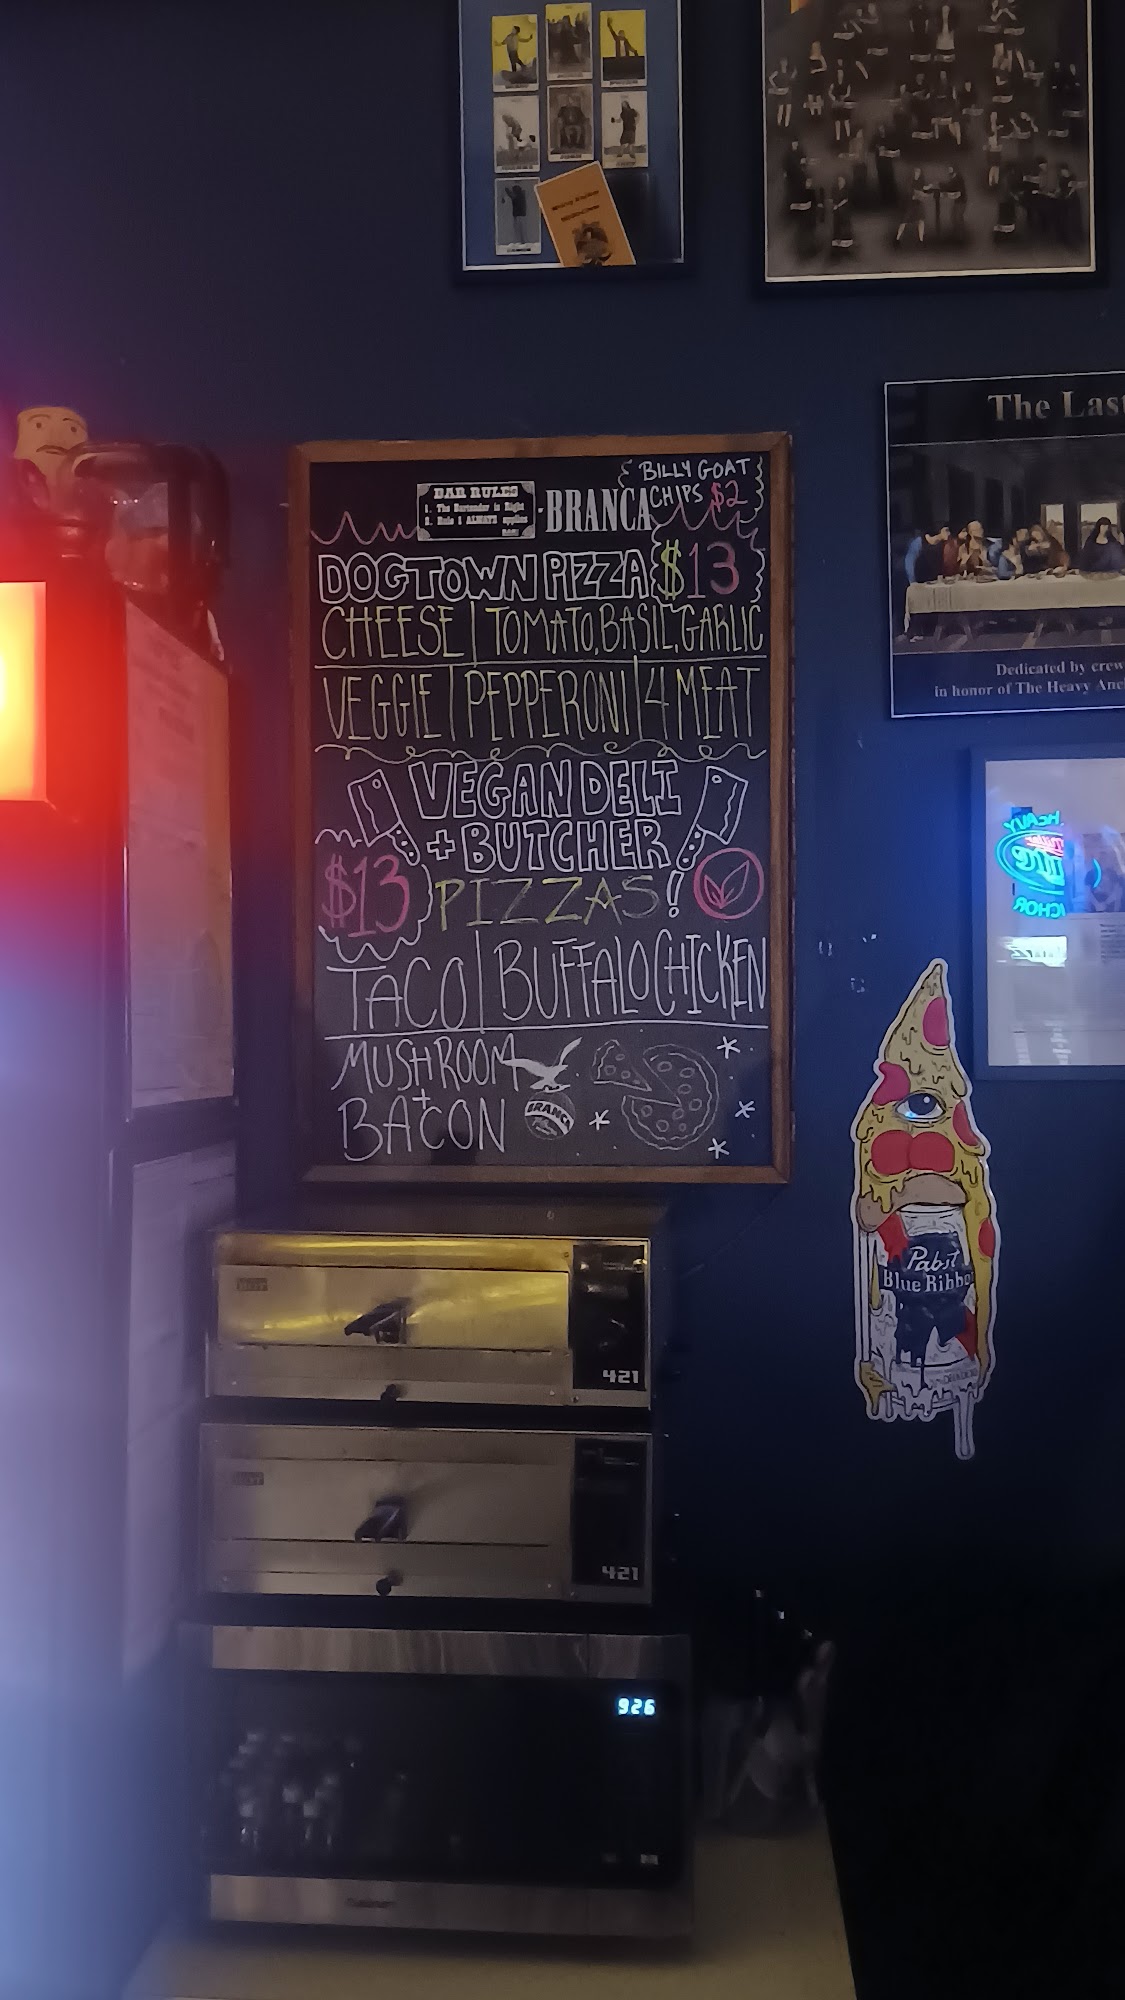 The Last
BILLY GOAT
CHIPS $2
BAR RULES
1. The Bartender is Right
2. Rule 1 ALWAYS applies
BRANCA
DOGTOWN PIZZA $13
CHEESE | TOMATO, BASIL, GARLIC
VEGGIE | PEPPERONI | 4 MEAT
VEGAN DELI
+ BUTCHER
$13 PIZZAS!
TACO | BUFFALO CHICKEN
MUSHROOM
+
BACON
BRANCA
Dedicated by crew
in honor of The Heavy Anc
HEAVY
Miller
Lite
Pabst
Blue Ribbon
421
421
9:26